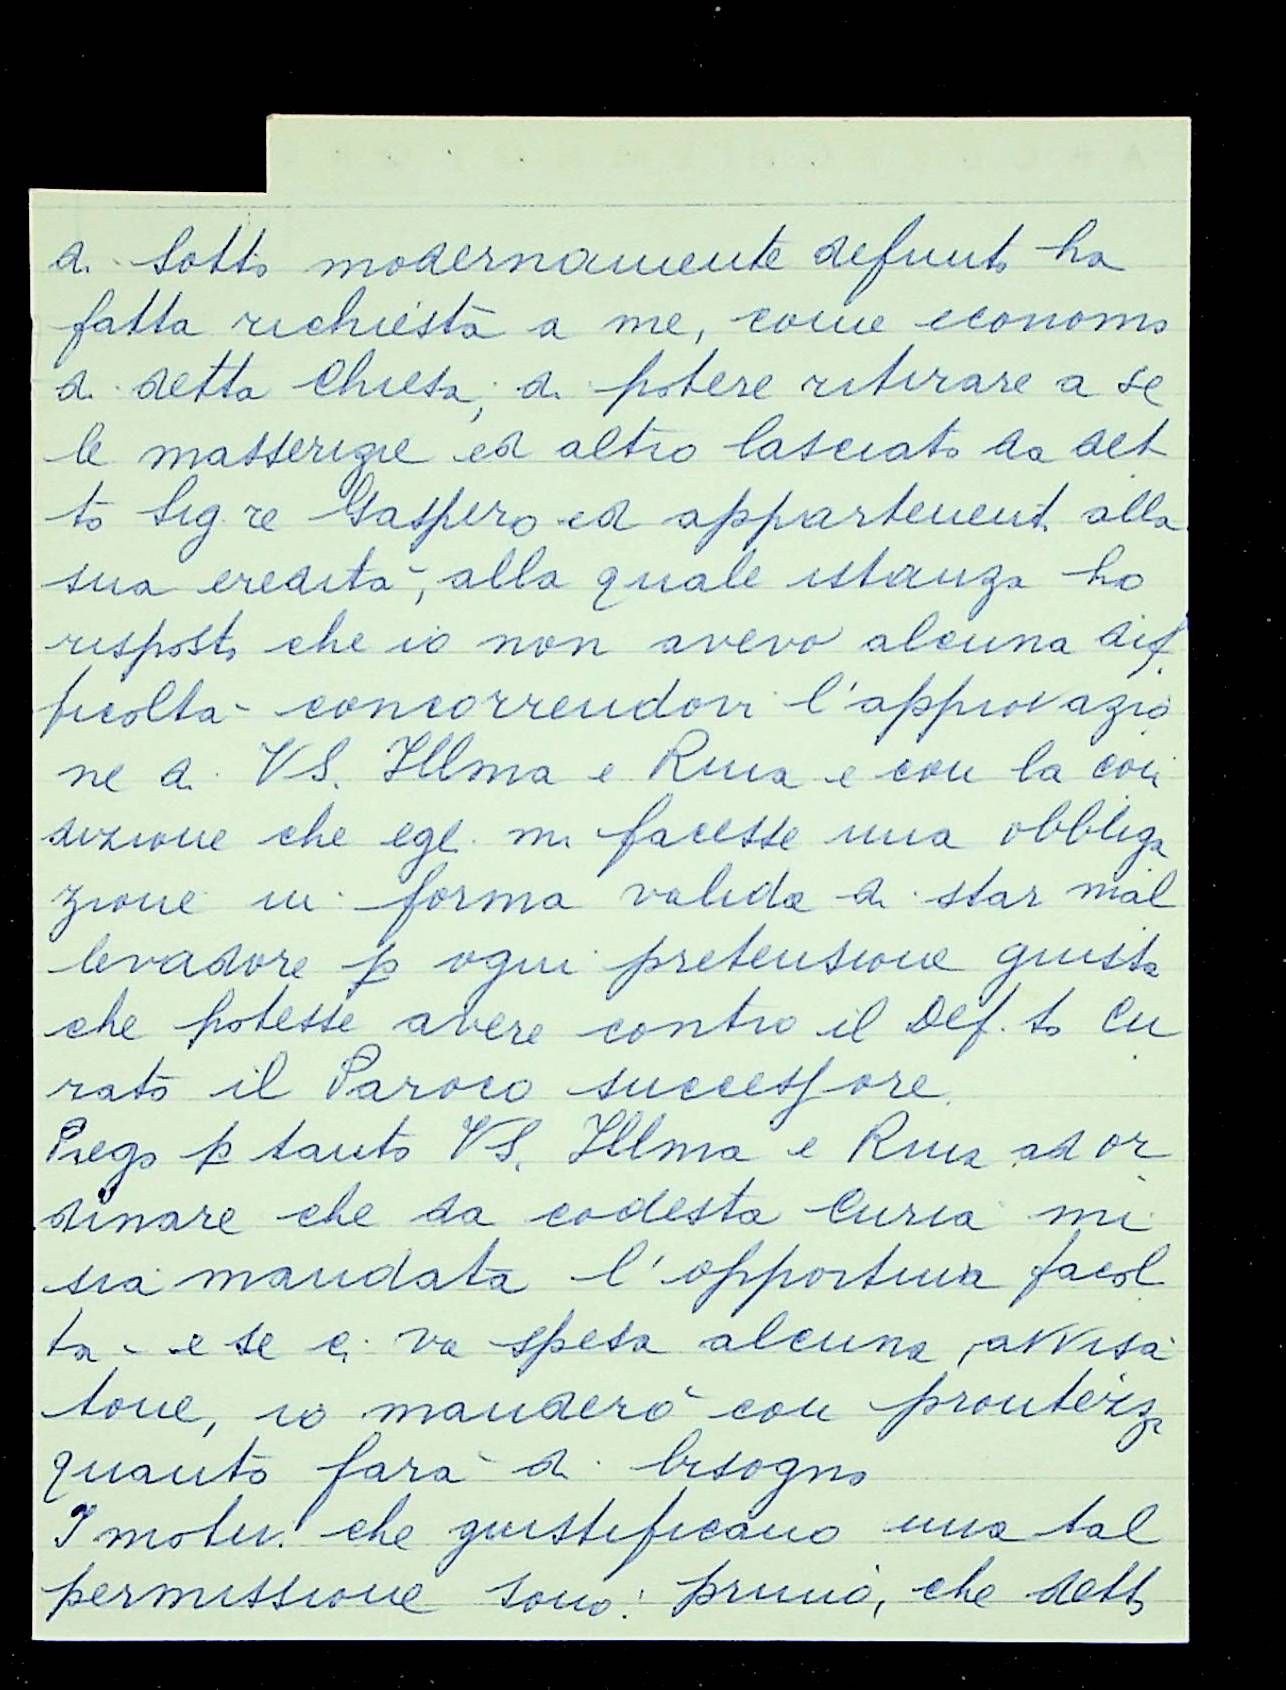 di Sotto modernamente defunto ha
fatta richiesta a me, come economo
di detta Chiesa, di potere ritirare a se
le masserizie ed altro lasciato da det
to Sig.re Gaspero ed appartenenti alla
sua eredità, alla quale istanza ho
risposto che io non avevo alcuna dif
ficoltà concorrendovi l'approvazio
ne di VS. Illma e Rma e con la con
dizione che egli mi facesse una obbliga
zione in forma valida di star mal
levadore p ogni pretensione giusta
che potesse avere contro il Def.to Cu
rato il Paroco successore.
Prego p tanto VS. Illma e Rma ad or
dinare che da codesta Curia mi
sia mandata l'opportuna facol
tà e se ci va spesa alcuna, avvisa
tone, io manderò con prontezza
quanto farà di bisogno
I motivi che giustificano una tal
permissione sono: primo, che detto